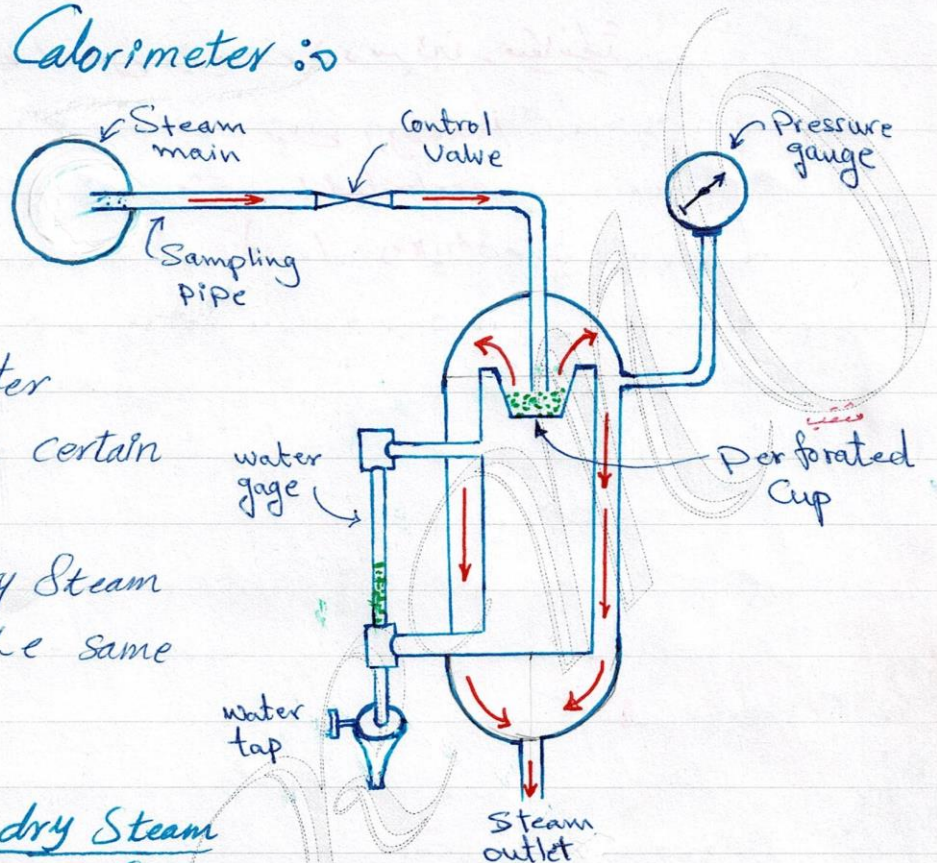 Calorimeter :-
Steam
main
Control
Valve
Pressure
gauge
Sampling
pipe
ter
certain
water
gage
Perforated
Cup
y Steam
e same
water
tap
dry Steam
Steam
outlet